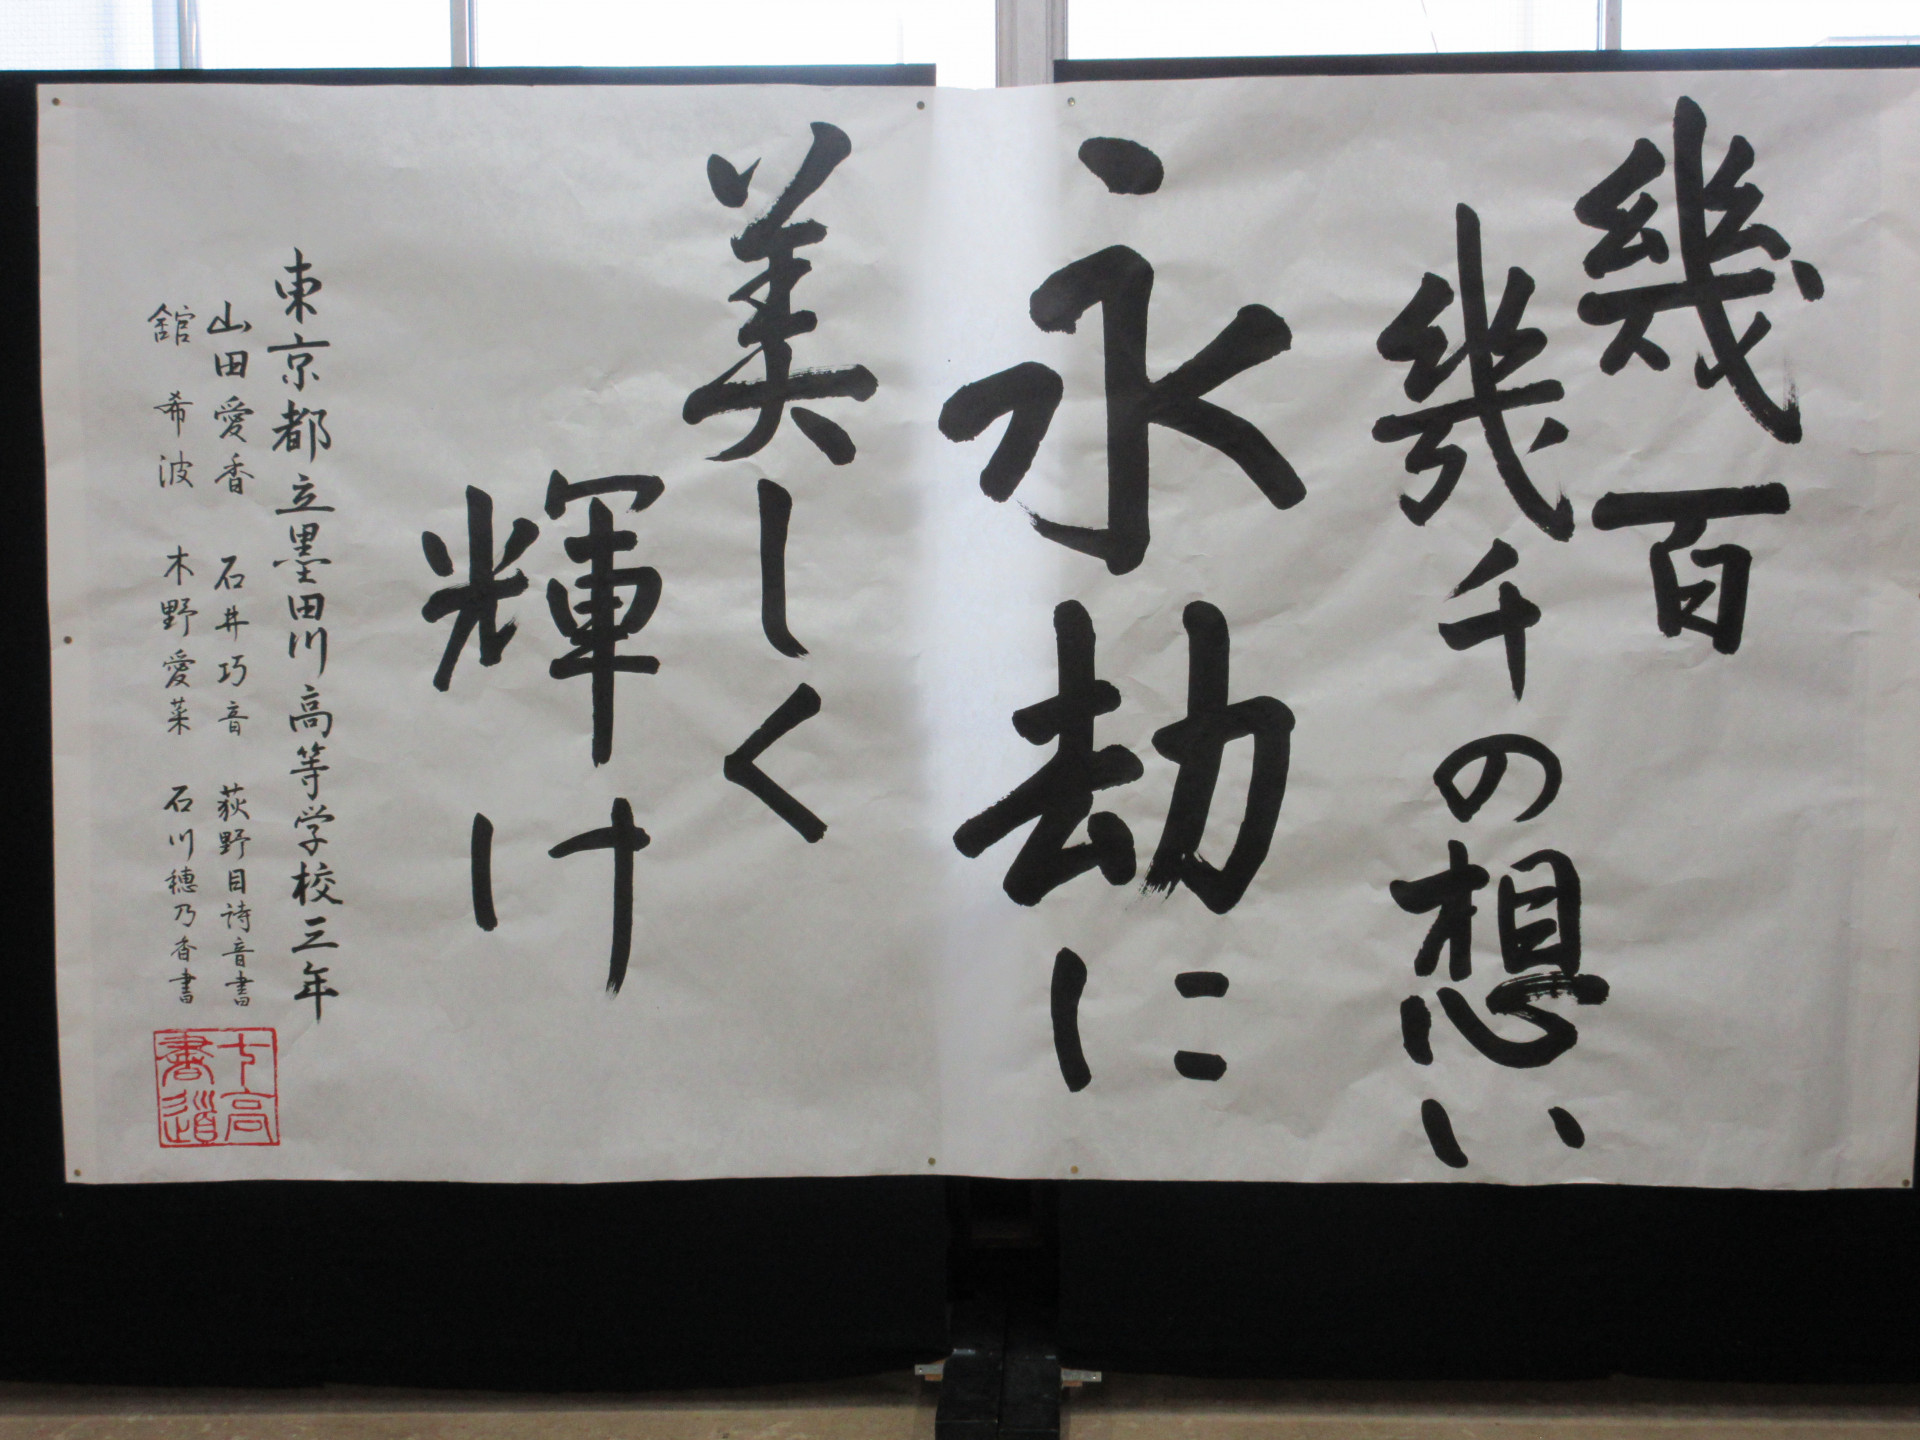 幾百
幾千の想い
永劫に
美しく
輝け
東京都立墨田川高等学校三年
山田愛香 石井巧音 荻野目詩音書
舘 希波 木野愛菜 石川穂乃香書
七高
書道